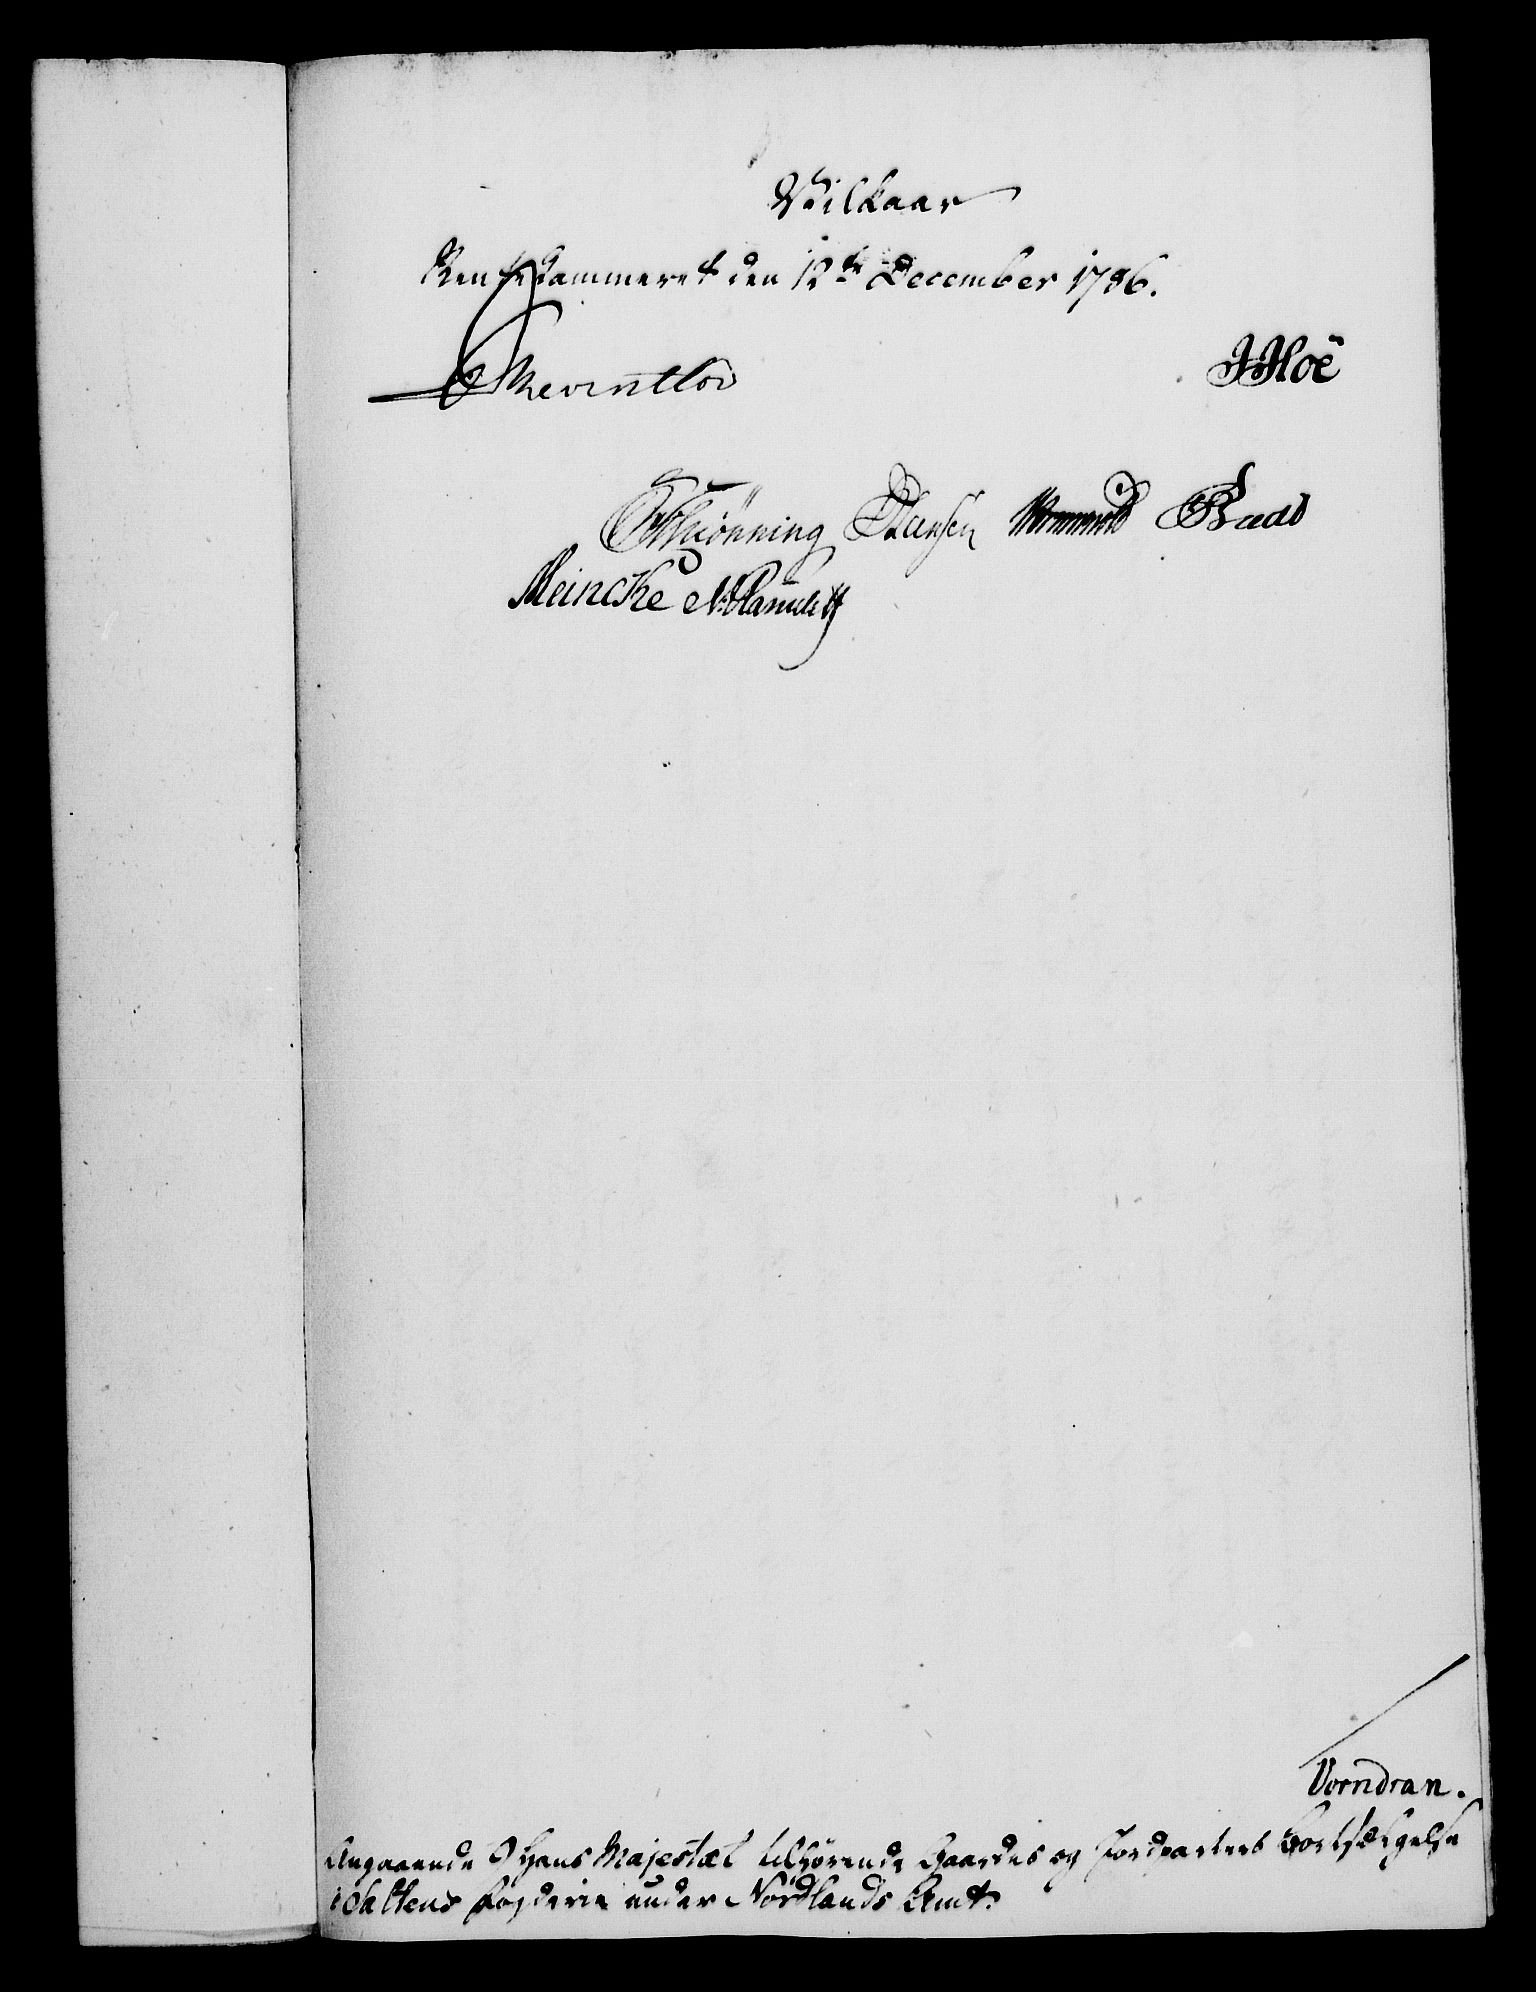 Vilkaar
Rentekammeret den 12te December 1786.
Reventlow
JHoë
Schiönning Hansen Wormskiold Bredal
Meincke
Vorndran.
Angaaende Hans Majestæt tilhørende Gaardes og Jordparters Bortsælgelse
i Saltens Fogderie under Nordlands Amt.